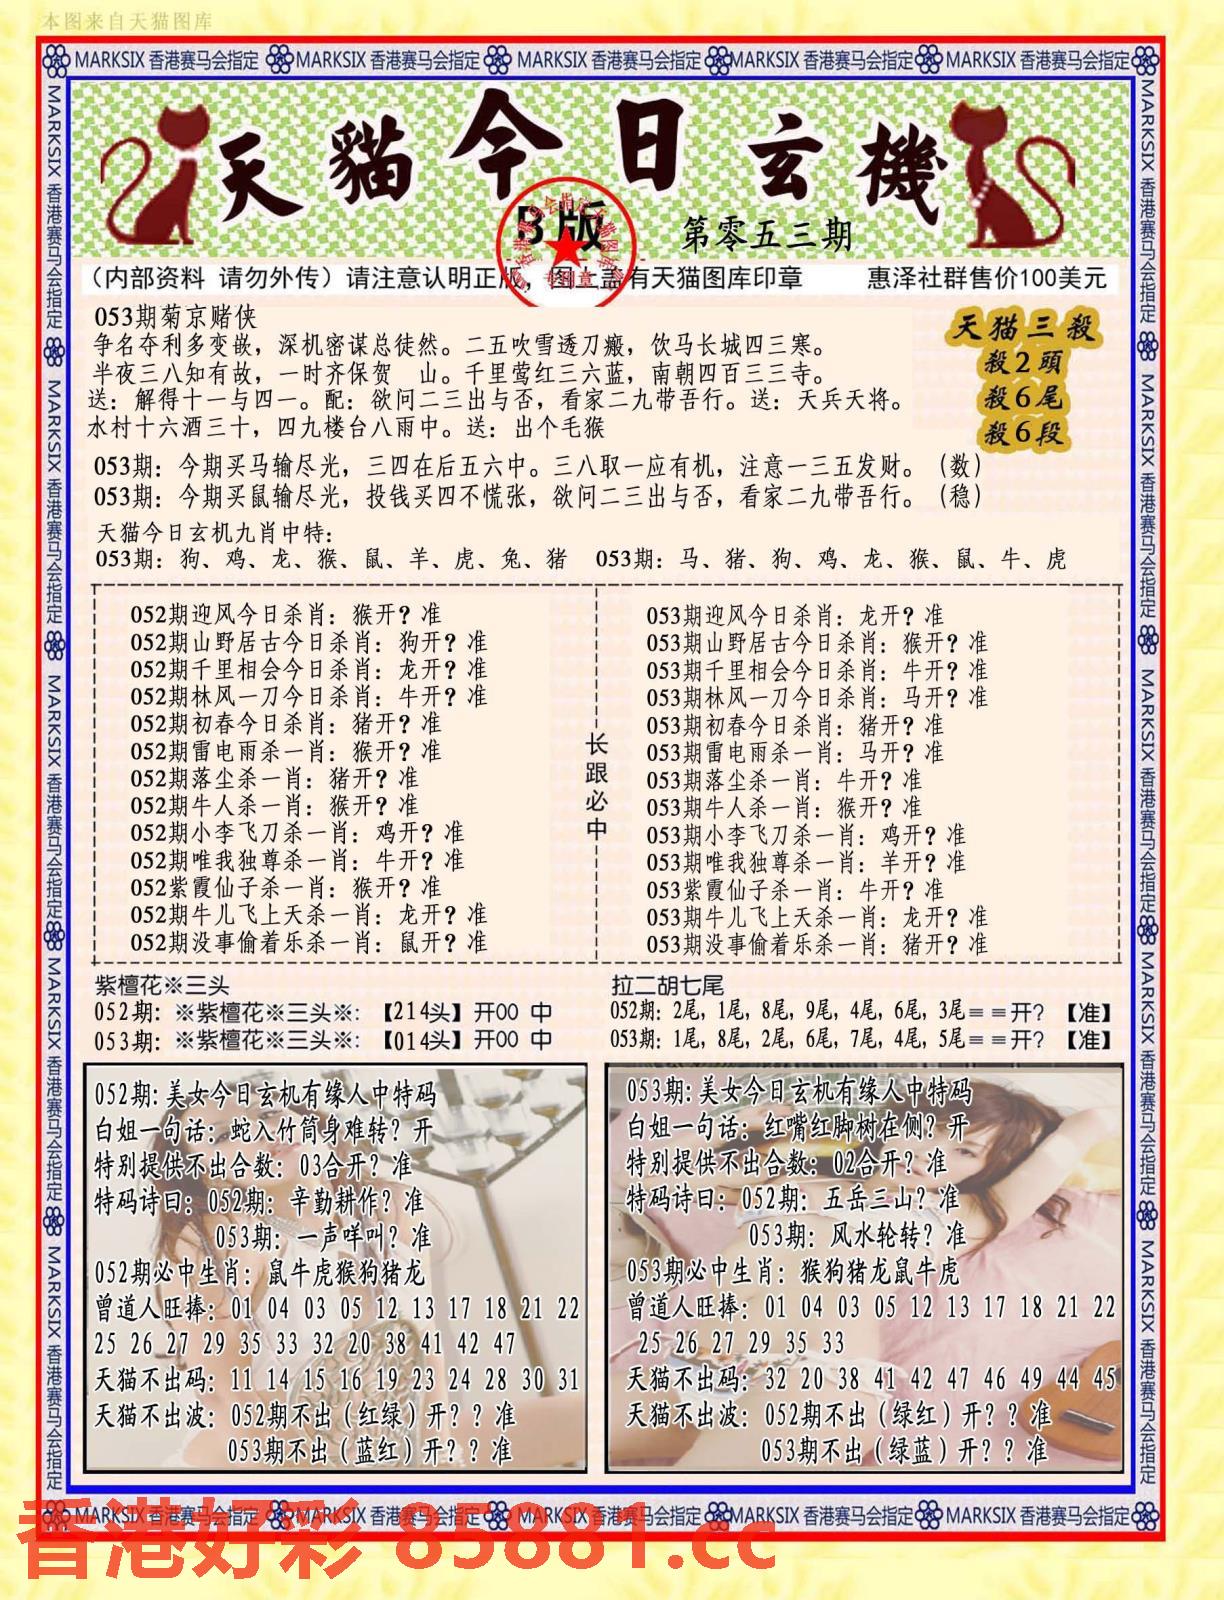 本图来自天猫图库
MARKSIX 香港赛马会指定 MARKSIX 香港赛马会指定 MARKSIX 香港赛马会指定 MARKSIX 香港赛马会指定 MARKSIX 香港赛马会指定
天貓今日玄機
B版
第零五三期
（内部资料 请勿外传）请注意认明正版，图上盖有天猫图库印章 惠泽社群售价100美元
053期菊京赌侠
争名夺利多变嵌，深机密谋总徒然。二五吹雪透刀瘢，饮马长城四三寒。
半夜三八知有故，一时齐保贺 山。千里莺红三六蓝，南朝四百三三寺。
送：解得十一与四一。配：欲问二三出与否，看家二九带吾行。送：天兵天将。
水村十六酒三十，四九楼台八雨中。送：出个毛猴
天猫三殺
殺2頭
殺6尾
殺6段
053期：今期买马输尽光，三四在后五六中。三八取一应有机，注意一三五发财。（数）
053期：今期买鼠输尽光，投钱买四不慌张，欲问二三出与否，看家二九带吾行。（稳）
天猫今日玄机九肖中特：
053期：狗、鸡、龙、猴、鼠、羊、虎、兔、猪 053期：马、猪、狗、鸡、龙、猴、鼠、牛、虎
052期迎风今日杀肖：猴开？准
052期山野居古今日杀肖：狗开？准
052期千里相会今日杀肖：龙开？准
052期林风一刀今日杀肖：牛开？准
052期初春今日杀肖：猪开？准
052期雷电雨杀一肖：猴开？准
052期落尘杀一肖：猪开？准
052期牛人杀一肖：猴开？准
052期小李飞刀杀一肖：鸡开？准
052期唯我独尊杀一肖：牛开？准
052紫霞仙子杀一肖：猴开？准
052期牛儿飞上天杀一肖：龙开？准
052期没事偷着乐杀一肖：鼠开？准
长跟必中
053期迎风今日杀肖：龙开？准
053期山野居古今日杀肖：猴开？准
053期千里相会今日杀肖：牛开？准
053期林风一刀今日杀肖：马开？准
053期初春今日杀肖：猪开？准
053期雷电雨杀一肖：马开？准
053期落尘杀一肖：牛开？准
053期牛人杀一肖：猴开？准
053期小李飞刀杀一肖：鸡开？准
053期唯我独尊杀一肖：羊开？准
053紫霞仙子杀一肖：牛开？准
053期牛儿飞上天杀一肖：龙开？准
053期没事偷着乐杀一肖：猪开？准
紫檀花※三头
052期：※紫檀花※三头※:【214头】开00 中
053期：※紫檀花※三头※:【014头】开00 中
拉二胡七尾
052期：2尾，1尾，8尾，9尾，4尾，6尾，3尾==开？【准】
053期：1尾，8尾，2尾，6尾，7尾，4尾，5尾==开？【准】
052期:美女今日玄机有缘人中特码
白姐一句话：蛇入竹筒身难转？开
特别提供不出合数：03合开？准
特码诗曰：052期：辛勤耕作？准
053期：一声咩叫？准
052期必中生肖：鼠牛虎猴狗猪龙
曾道人旺捧：01 04 03 05 12 13 17 18 21 22
25 26 27 29 35 33 32 20 38 41 42 47
天猫不出码：11 14 15 16 19 23 24 28 30 31
天猫不出波：052期不出（红绿）开？？准
053期不出（蓝红）开？？准
053期:美女今日玄机有缘人中特码
白姐一句话：红嘴红脚树在侧？开
特别提供不出合数：02合开？准
特码诗曰：052期：五岳三山？准
053期：风水轮转？准
053期必中生肖：猴狗猪龙鼠牛虎
曾道人旺捧：01 04 03 05 12 13 17 18 21 22
25 26 27 29 35 33
天猫不出码：32 20 38 41 42 47 46 49 44 45
天猫不出波：052期不出（绿红）开？？准
053期不出（绿蓝）开？？准
MARKSIX 香港赛马会指定 MARKSIX 香港赛马会指定 MARKSIX 香港赛马会指定 MARKSIX 香港赛马会指定 MARKSIX 香港赛马会指定
MARKSIX 香港赛马会指定 MARKSIX 香港赛马会指定 MARKSIX 香港赛马会指定 MARKSIX 香港赛马会指定 MARKSIX 香港赛马会指定
MARKSIX 香港赛马会指定 MARKSIX 香港赛马会指定 MARKSIX 香港赛马会指定 MARKSIX 香港赛马会指定 MARKSIX 香港赛马会指定
香港好彩 85881.cc